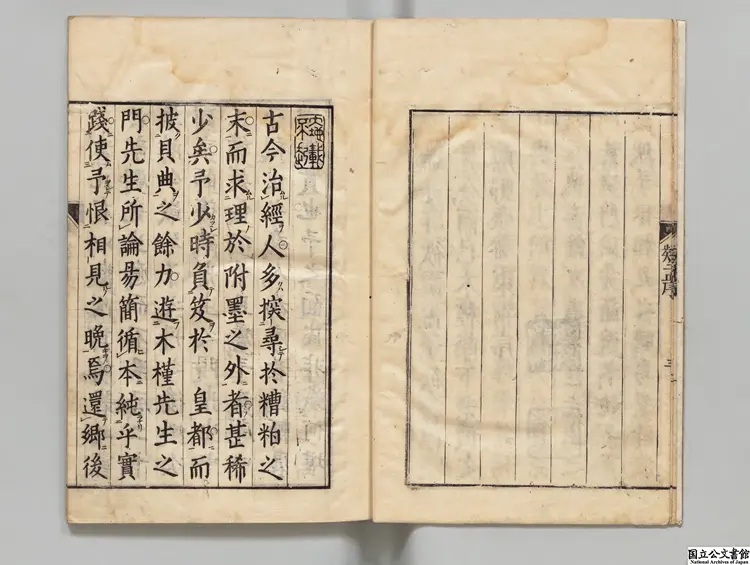 古今治經人多探尋於糟粕之
末而求理於附墨之外者甚稀
少矣予少時負笈於 皇都而
披貝典之餘力遊木槿先生之
門先生所論易簡循本純乎實
踐使予恨相見之晚焉還鄉後
国立公文書館
National Archives of Japan